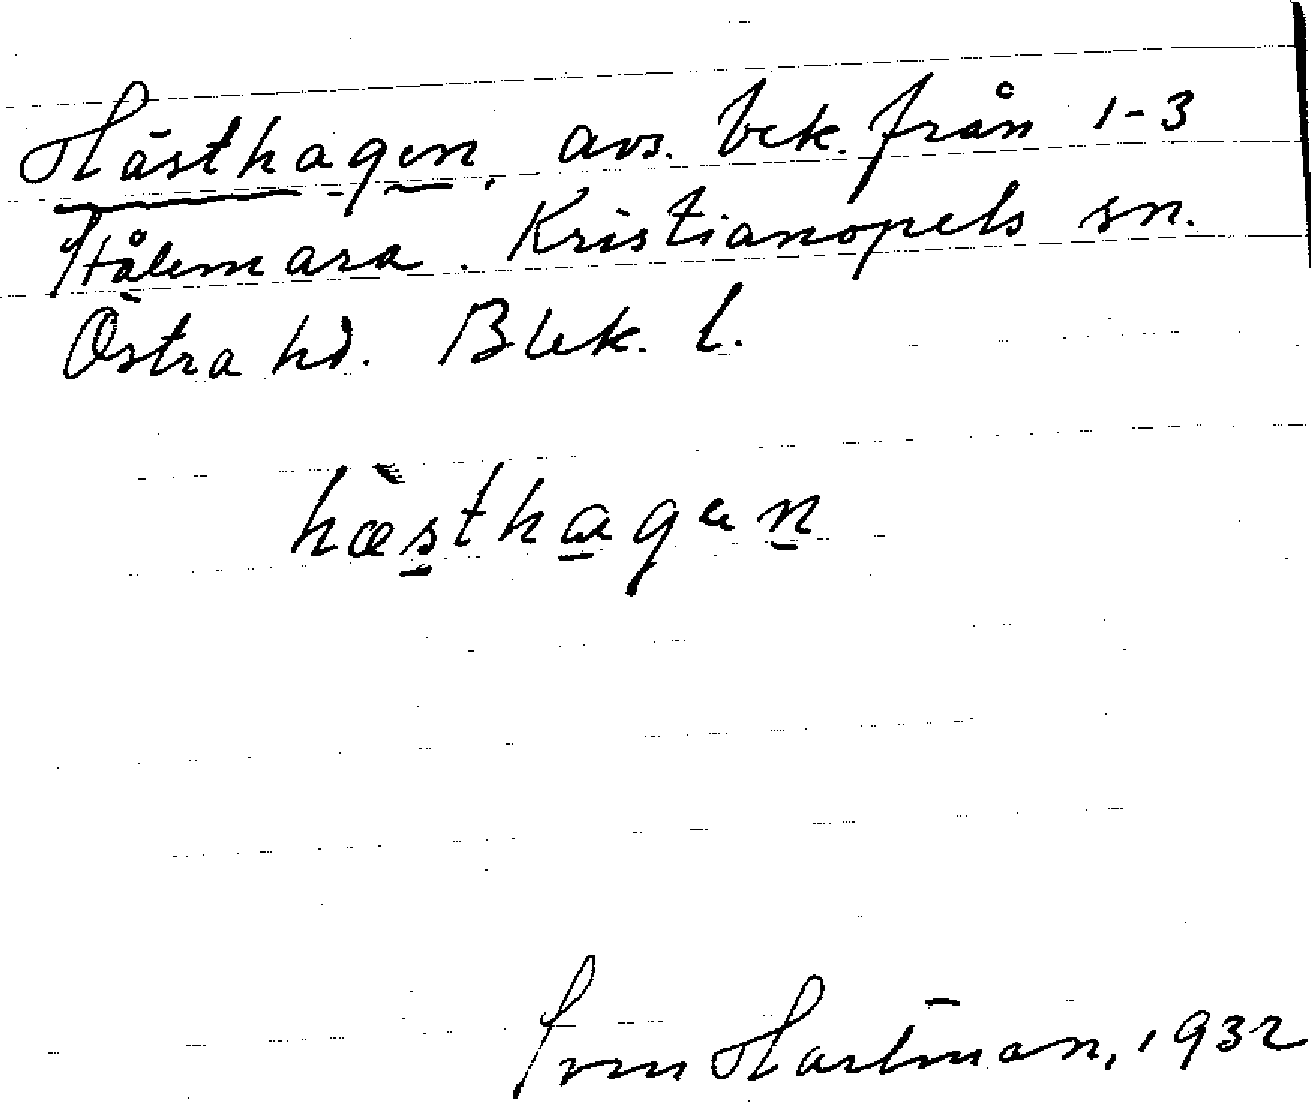 Hästhagen, avs. bek. från 1-3
Stålemara. Kristianopels sn.
Östra hd. Blek. l.
hæ̀sthagen
Sven Hartman, 1932